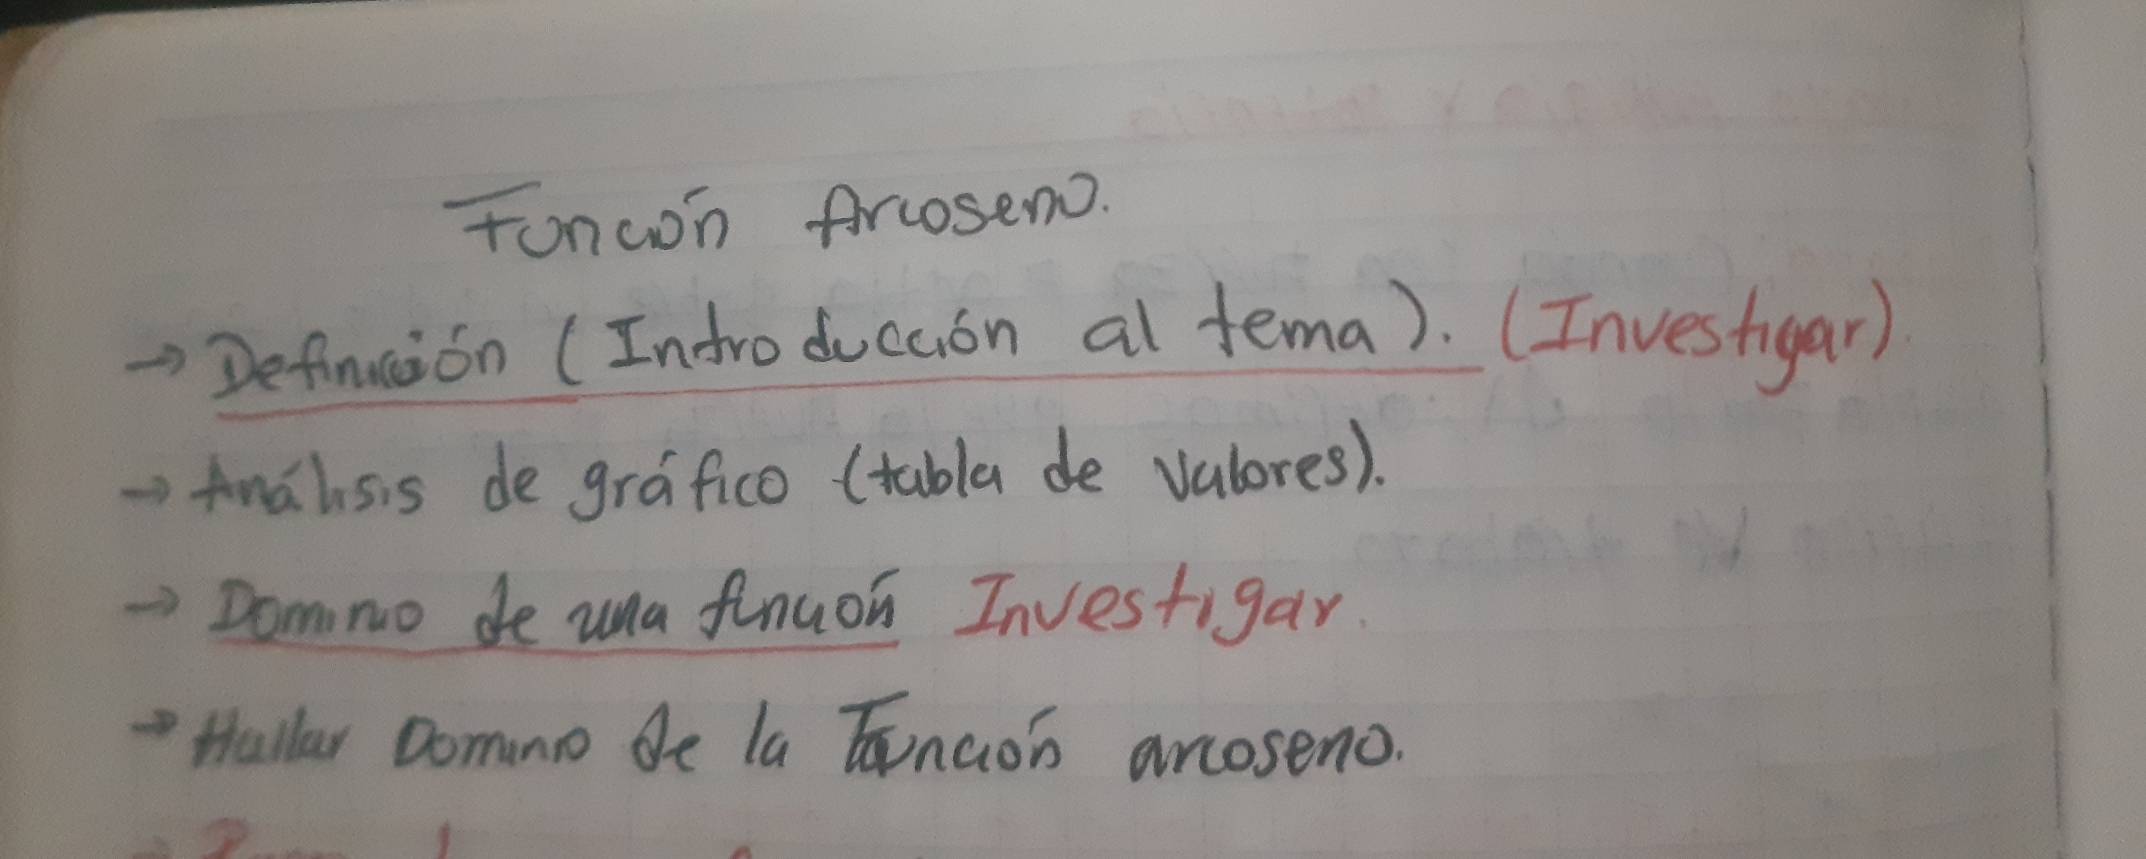 Función Arcoseno.
→ Definición (Introducción al tema). (Investigar).
→ Análisis de gráfico (tabla de valores).
→ Dominio de una función Investigar.
→ Hallar Dominio de la Función arcoseno.